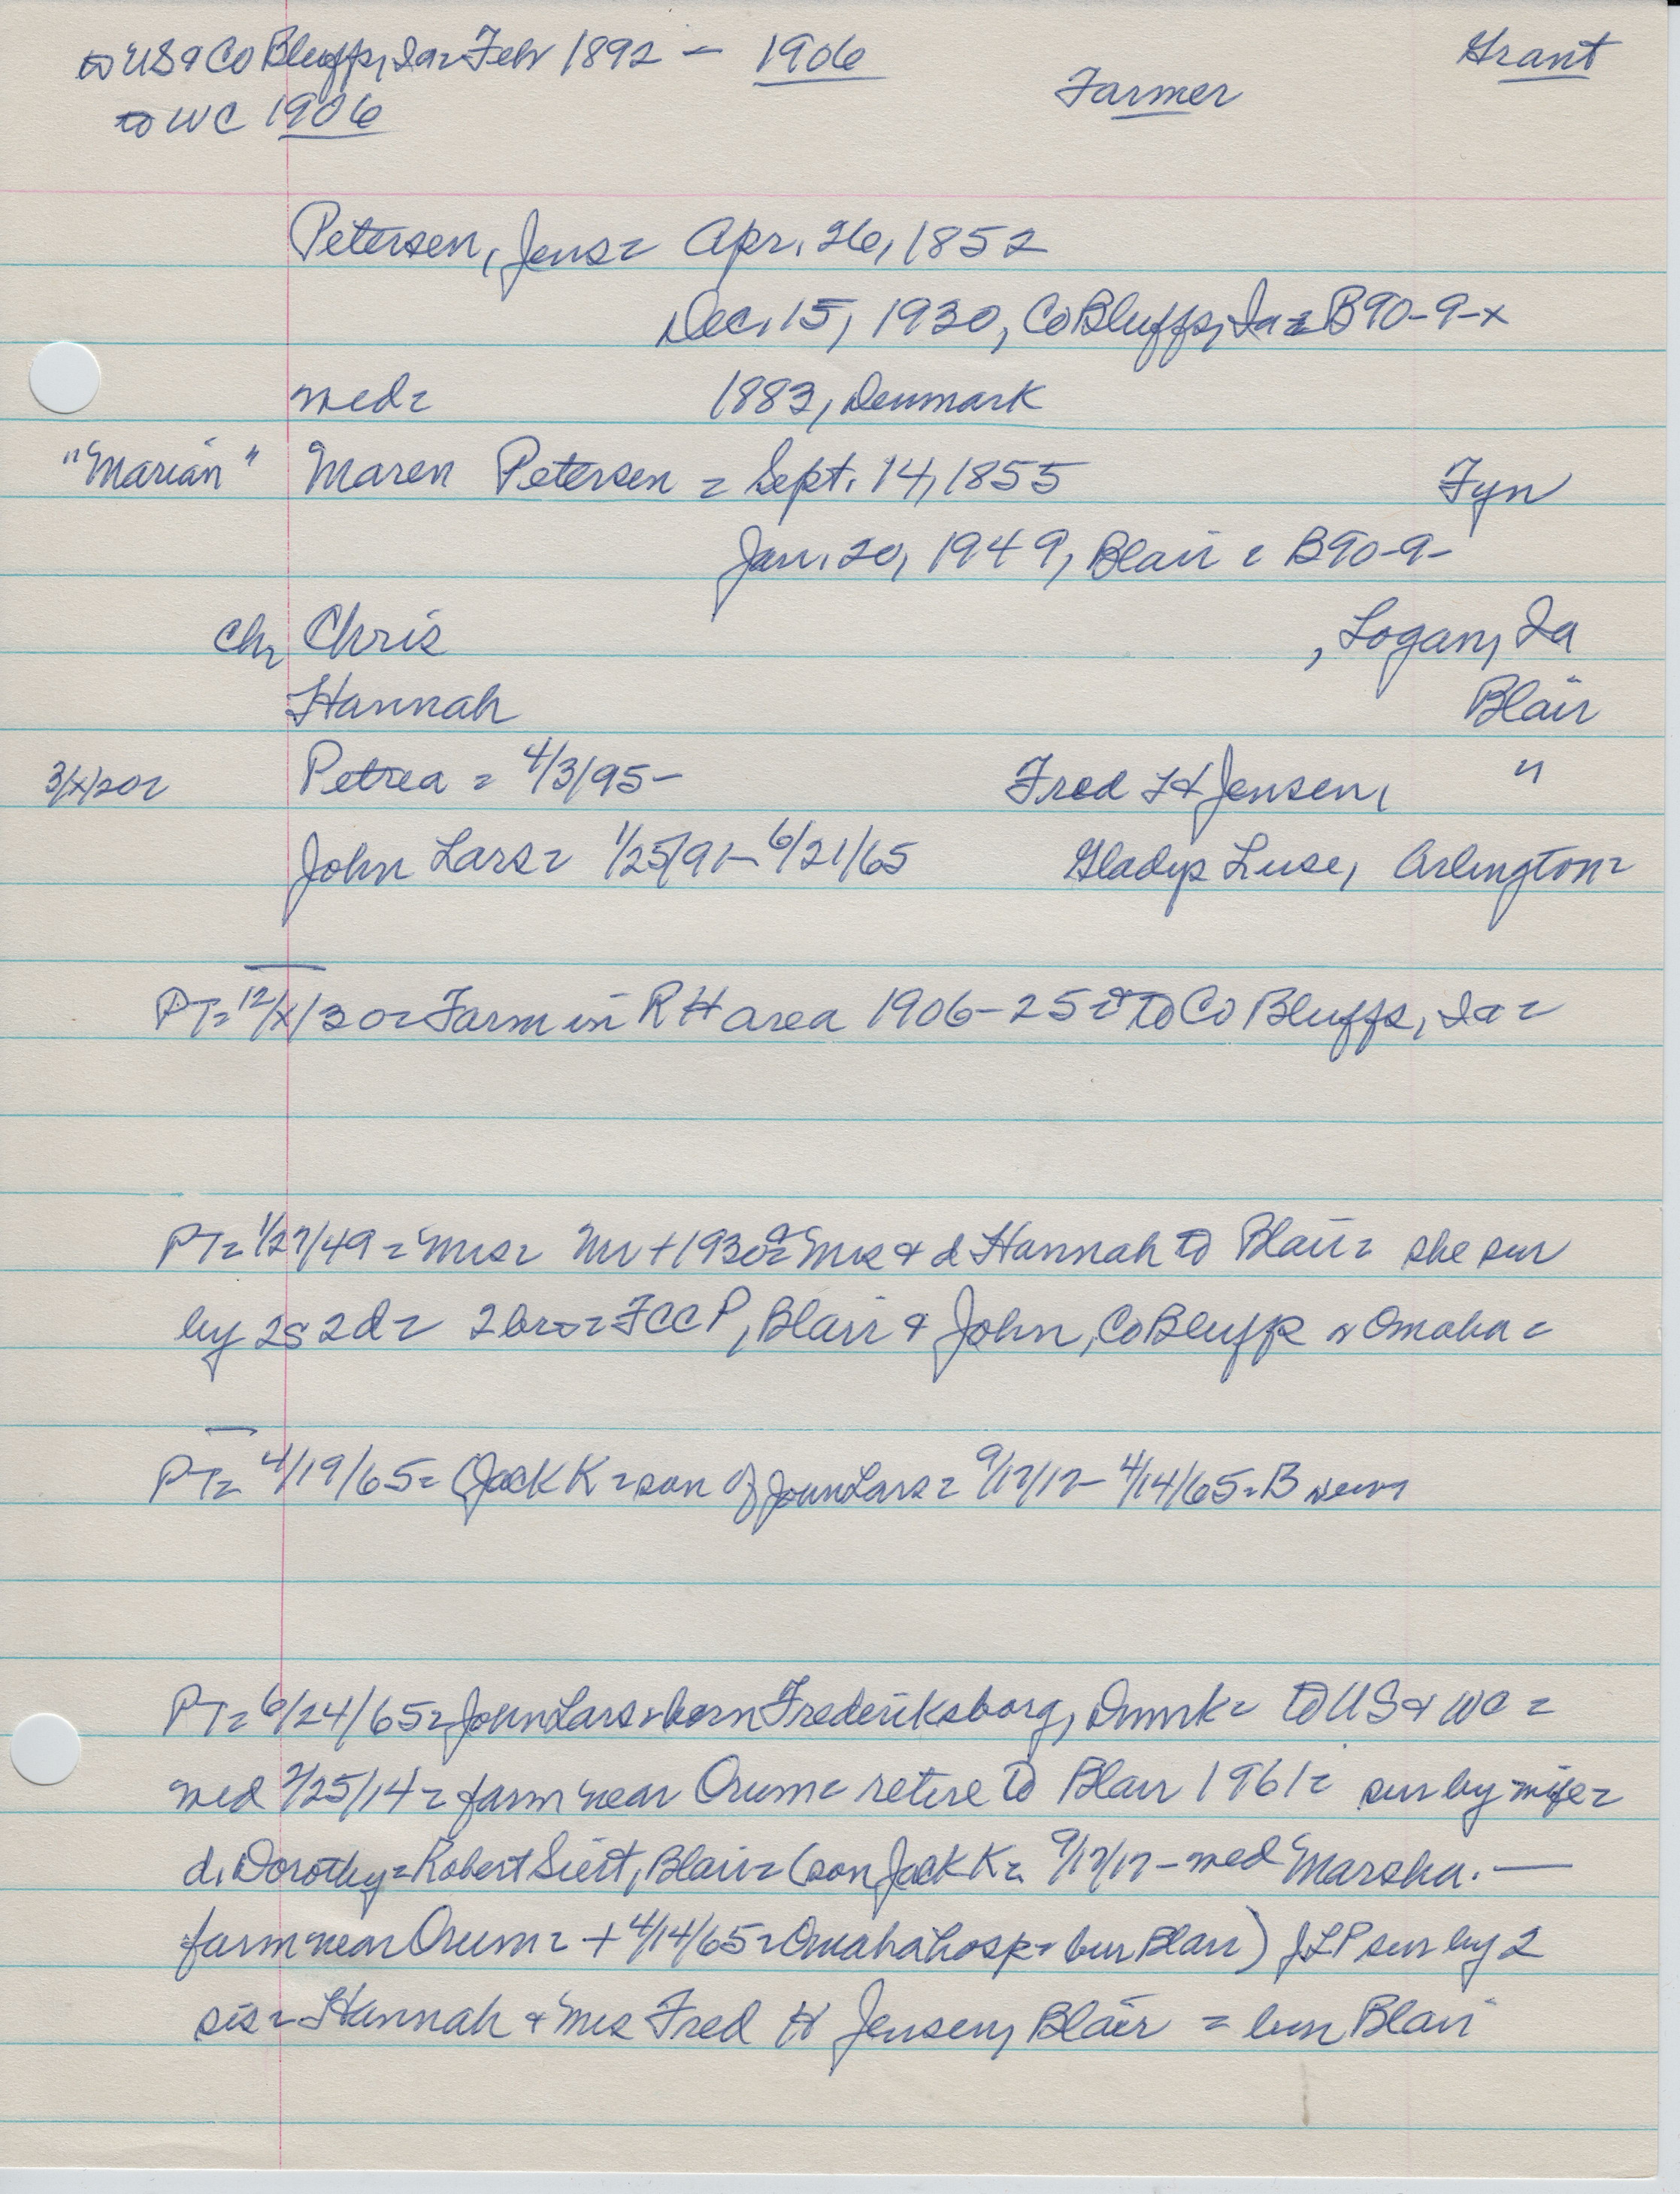 to US & Co Bluffs, Ia = Feb 1892 - 1906
Grant
Farmer
to WC 1906
Petersen, Jens = Apr. 26, 1852
Dec. 15, 1930, Co Bluffs, Ia = B90-9-x
med = 1883, Denmark
"Marian" Maren Petersen = Sept. 14, 1855 Fyn
Jan. 20, 1949, Blair = B90-9-
Ch, Chris , Logan, Ia
Hannah Blair
3/x/20 = Petrea = 4/3/95- Fred H Jensen, "
John Lars = 1/25/91-6/21/65 Gladys Luse, Arlington =
PT = 12/x/30 = Farm in RH area 1906-25 = & to Co Bluffs, Ia =
PT = 1/27/49 = Mrs = Mr + 1930 = & Mrs & d Hannah to Blair = she sur
by 2s 2d = 2 bro = FCCP, Blair & John, Co Bluffs or Omaha =
PT = 4/19/65 = (Jack K = son of John Lars = 9/17/17-4/14/65 = B
PT = 6/24/65 = John Lars = born Frederiksborg, Dnmk = to US & WC =
med 2/25/14 = farm near Orum = retire to Blair 1961 = sur by wife =
d. Dorothy = Robert Siert, Blair = (son Jack K = 9/17/17 - med Marsha. —
farm near Orum = + 4/14/65 = Omaha hosp = bur Blair) JLP sur by 2
sis = Hannah & Mrs Fred H Jensen, Blair = bur Blair